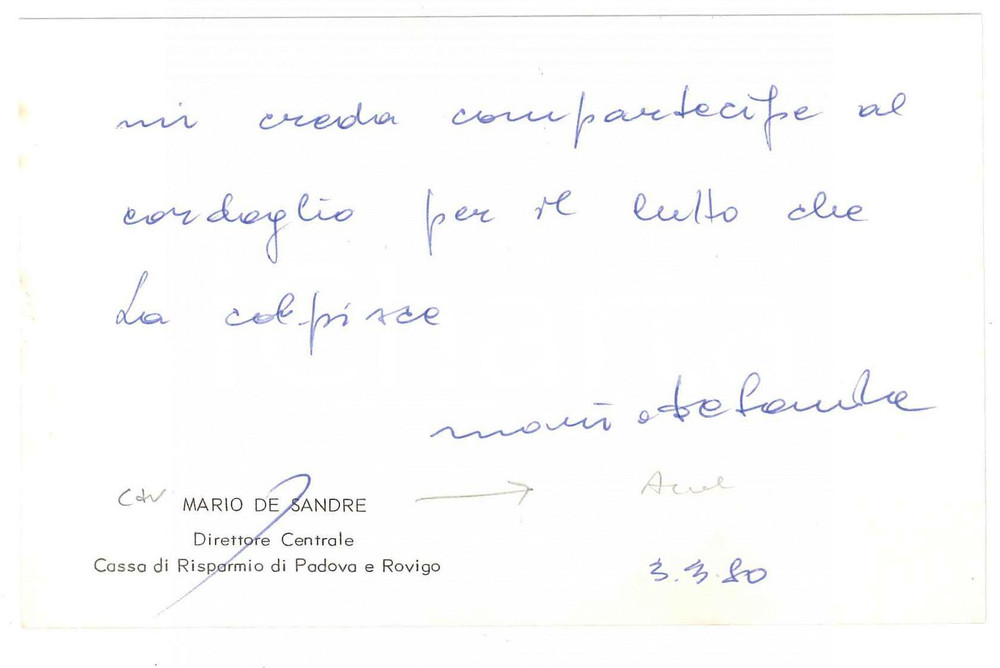 mi creda compartecipe al
cordoglio per il lutto che
La colpisce
Mario De Sandre
MARIO DE SANDRE
Direttore Centrale
Cassa di Risparmio di Padova e Rovigo
3.3.80